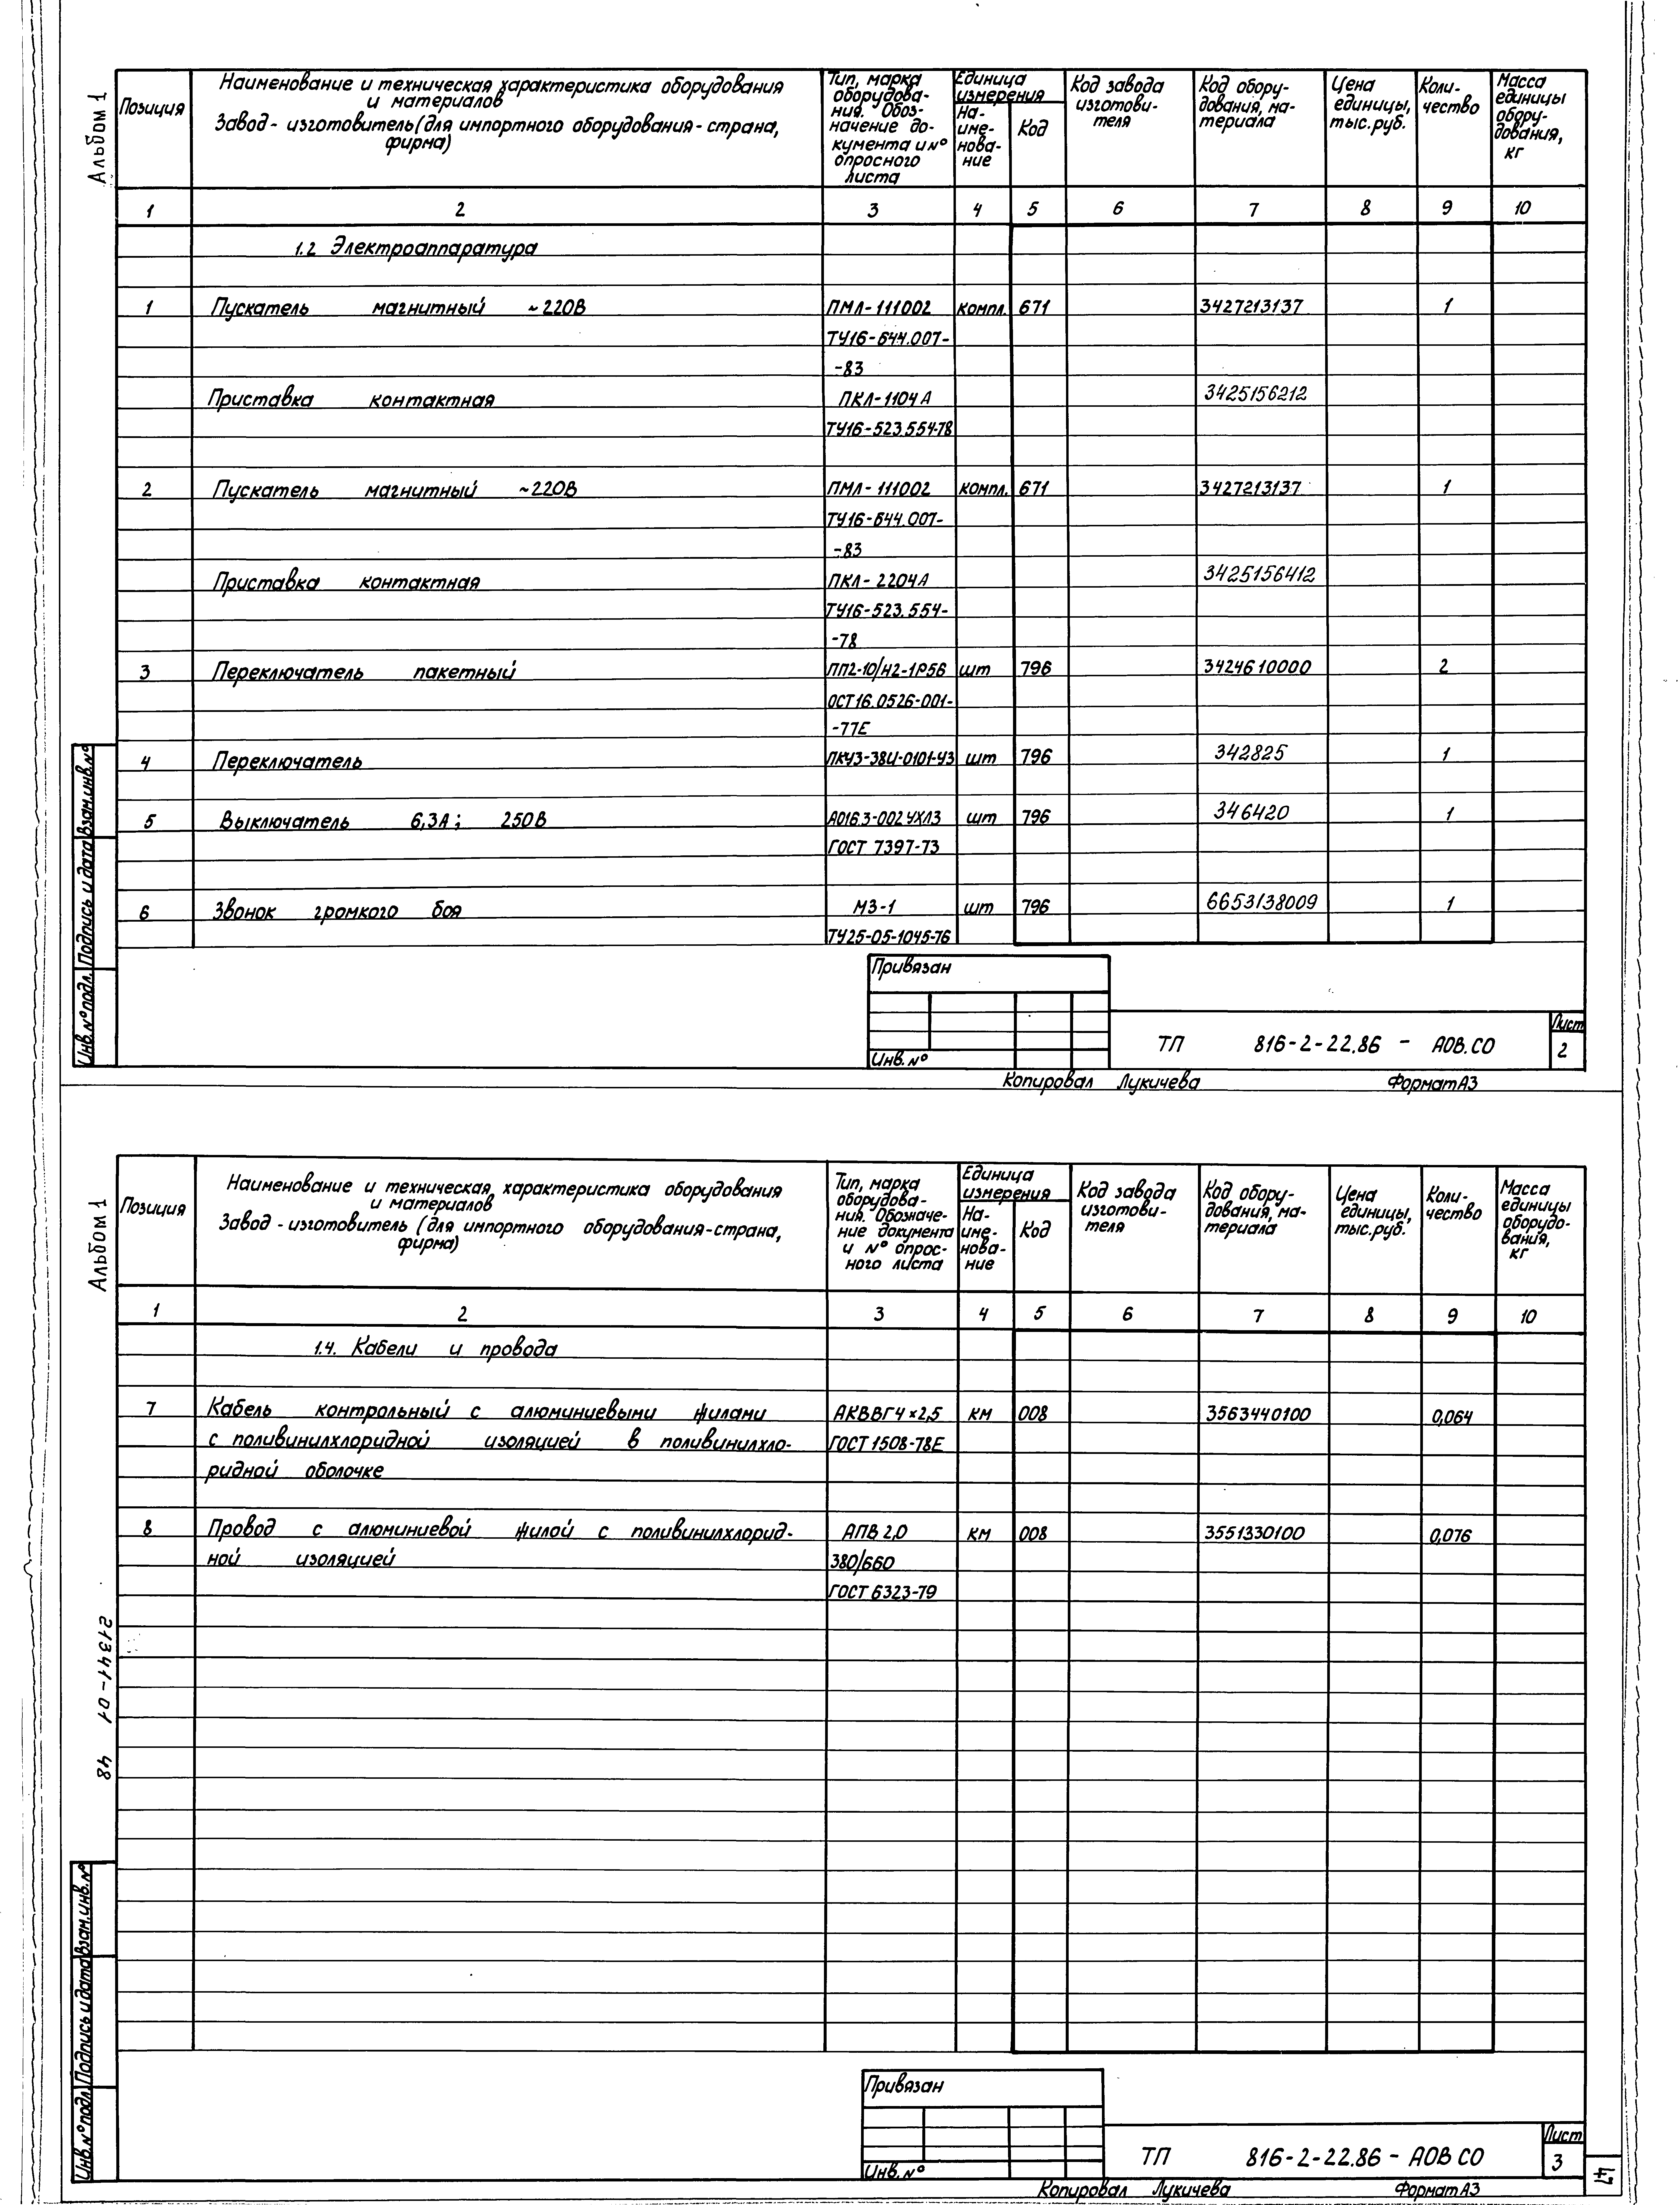 Альбом 1
Позиция
Наименование и техническая характеристика оборудования
и материалов
Завод - изготовитель (для импортного оборудования - страна,
фирма)
Тип, марка
оборудова-
ния. Обоз-
начение до-
кумента и №
опросного
листа
Единица
измерения
На-
име-
нова-
ние
Код
Код завода
изготови-
теля
Код обору-
дования, ма-
териала
Цена
единицы,
тыс. руб.
Коли-
чество
Масса
единицы
обору-
дования,
кг
1 2 3 4 5 6 7 8 9 10
1.2 Электроаппаратура
1 Пускатель магнитный ~220В ПМЛ-111002 компл. 671 3427213137 1
ТУ16-644.007-
-83
Приставка контактная ПКЛ-1104А 3425156212
ТУ16-523.554-78
2 Пускатель магнитный ~220В ПМЛ-111002 компл. 671 3427213137 1
ТУ16-644.007-
-83
Приставка контактная ПКЛ-2204А 3425156412
ТУ16-523.554-
-78
3 Переключатель пакетный ПП2-10/Н2-1Р56 шт 796 3424610000 2
ОСТ16.0526-001-
-77Е
4 Переключатель ПКУ3-38И-0101-У3 шт 796 342825 1
5 Выключатель 6,3А; 250В А0163-002УХЛ3 шт 796 346420 1
ГОСТ 7397-73
6 Звонок громкого боя МЗ-1 шт 796 6653138009 1
ТУ25-05-1045-76
Инв. № подл. Подпись и дата Взам. инв. №
Привязан
Инв. №
ТП 816-2-22.86 - АОВ.СО
Лист
2
Копировал Лукичева Формат А3
Альбом 1
Позиция
Наименование и техническая характеристика оборудования
и материалов
Завод - изготовитель (для импортного оборудования - страна,
фирма)
Тип, марка
оборудова-
ния. Обозначе-
ние документа
и № опрос-
ного листа
Единица
измерения
На-
име-
нова-
ние
Код
Код завода
изготови-
теля
Код обору-
дования, ма-
териала
Цена
единицы,
тыс. руб.
Коли-
чество
Масса
единицы
оборудо-
вания,
кг
1 2 3 4 5 6 7 8 9 10
1.4. Кабели и провода
7 Кабель контрольный с алюминиевыми жилами АКВВГ4×2,5 км 008 3563440100 0,064
с поливинилхлоридной изоляцией в поливинилхло- ГОСТ 1508-78Е
ридной оболочке
8 Провод с алюминиевой жилой с поливинилхлорид- АПВ 2,0 км 008 3551330100 0,076
ной изоляцией 380/660
ГОСТ 6323-79
21341-01 48
Инв. № подл. Подпись и дата Взам. инв. №
Привязан
Инв. №
ТП 816-2-22.86 - АОВ СО
Лист
3
47
Копировал Лукичева Формат А3